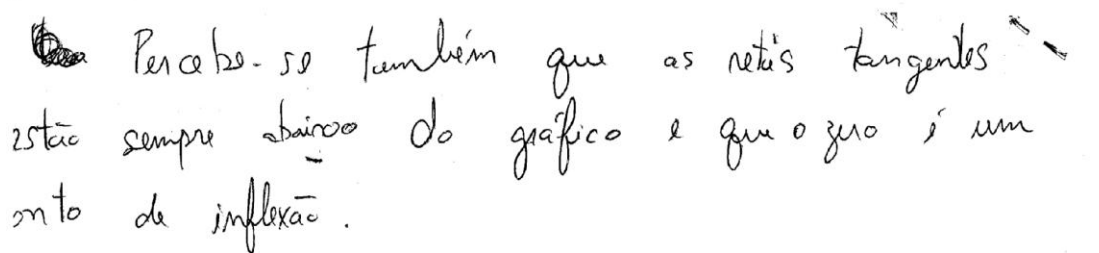 Percebe-se também que as retas tangentes
estão sempre abaixo do gráfico e que o zero é um
onto de inflexão.